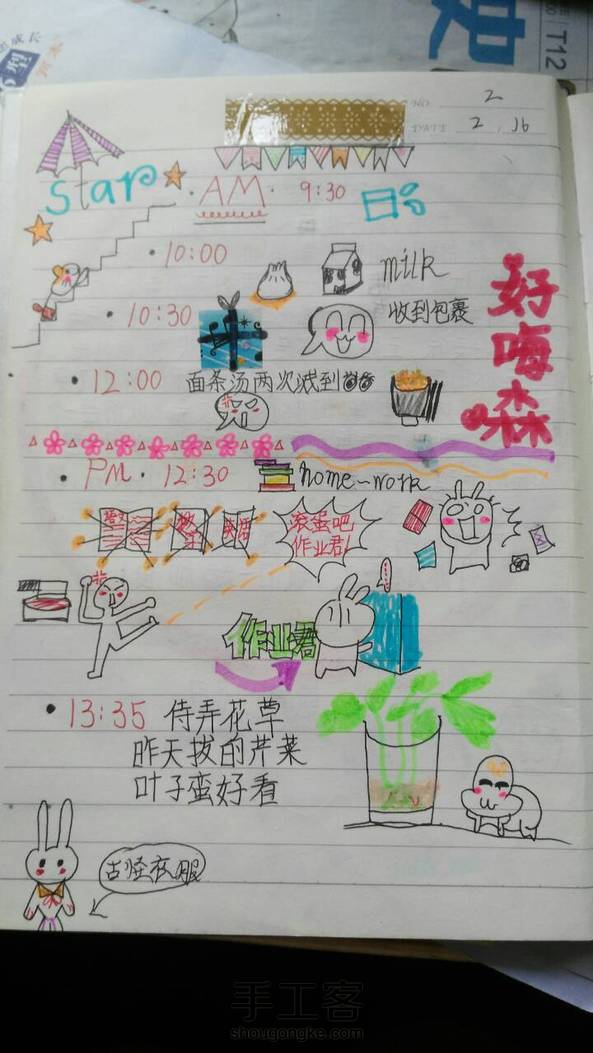 史
T12
成长
NO. 2
DATE 2.16
star
·AM· 9:30
·10:00
milk
·10:30
收到包裹
好嗨森
·12:00 面条汤两次溅到
·PM·12:30 home-work
滚蛋吧
作业君!
作业君
·13:35 侍弄花草
昨天拔的芹菜
叶子蛮好看
古怪衣服
手工客
shougongke.com